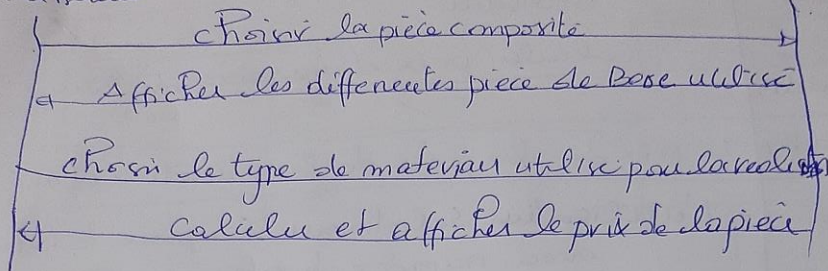 choisir la pièce composite
Afficher les differentes piece de Base utilisé
choisir le type de materiau utilisé pour la realisation
Calculer et afficher le prix de la piece